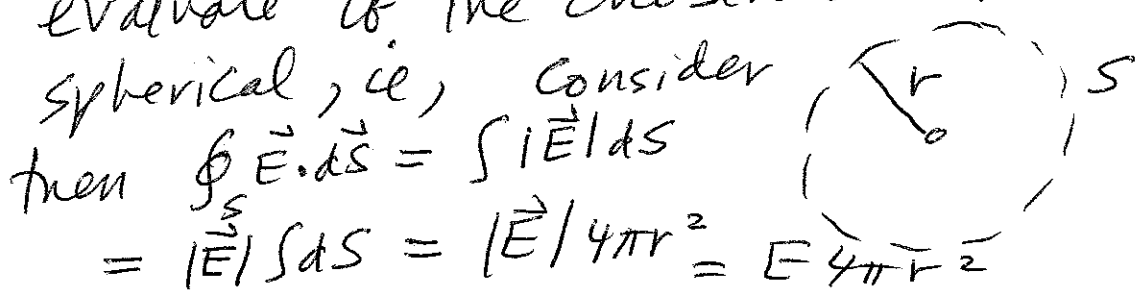 evaluate if the chosen
spherical, ie, consider r S
then ∮_S E⃗·dS⃗ = ∫|E⃗|dS
= |E⃗|∫dS = |E⃗|4πr² = E4πr²